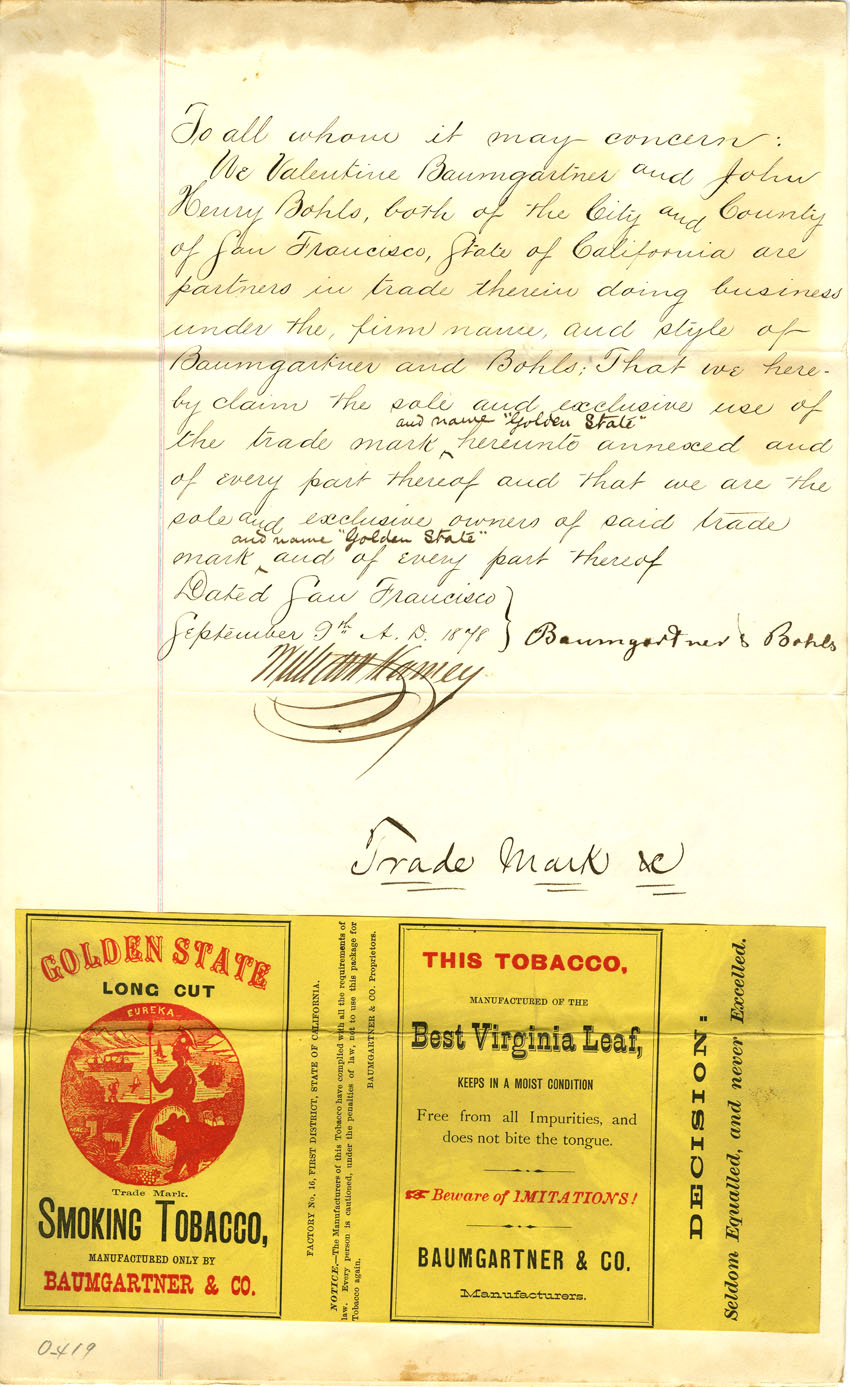 To all whom it may concern:
We Valentine Baumgartner and John
Henry Bohls, both of the City and County
of San Francisco, State of California are
partners in trade therein doing business
under the, firm name, and style of
Baumgartner and Bohls; That we here-
by claim the sole and exclusive use of
and name "Golden State"
the trade mark ‸ hereunto annexed and
of every part thereof and that we are the
sole and exclusive owners of said trade
and name "Golden State"
mark ‸ and of every part thereof
Dated San Francisco
September 9th A. D. 1878 } Baumgartner & Bohls
Trade Mark &c
GOLDEN STATE
LONG CUT
EUREKA
Trade Mark.
SMOKING TOBACCO,
MANUFACTURED ONLY BY
BAUMGARTNER & CO.
FACTORY No. 16, FIRST DISTRICT, STATE OF CALIFORNIA.
NOTICE.—The Manufacturers of this Tobacco have complied with all the requirements of
law. Every person is cautioned, under the penalties of law, not to use this package for
Tobacco again.
BAUMGARTNER & CO. Proprietors.
THIS TOBACCO,
MANUFACTURED OF THE
Best Virginia Leaf,
KEEPS IN A MOIST CONDITION
Free from all Impurities, and
does not bite the tongue.
☞ Beware of IMITATIONS!
BAUMGARTNER & CO.
Manufacturers.
DECISION:
Seldom Equalled, and never Excelled.
0-419